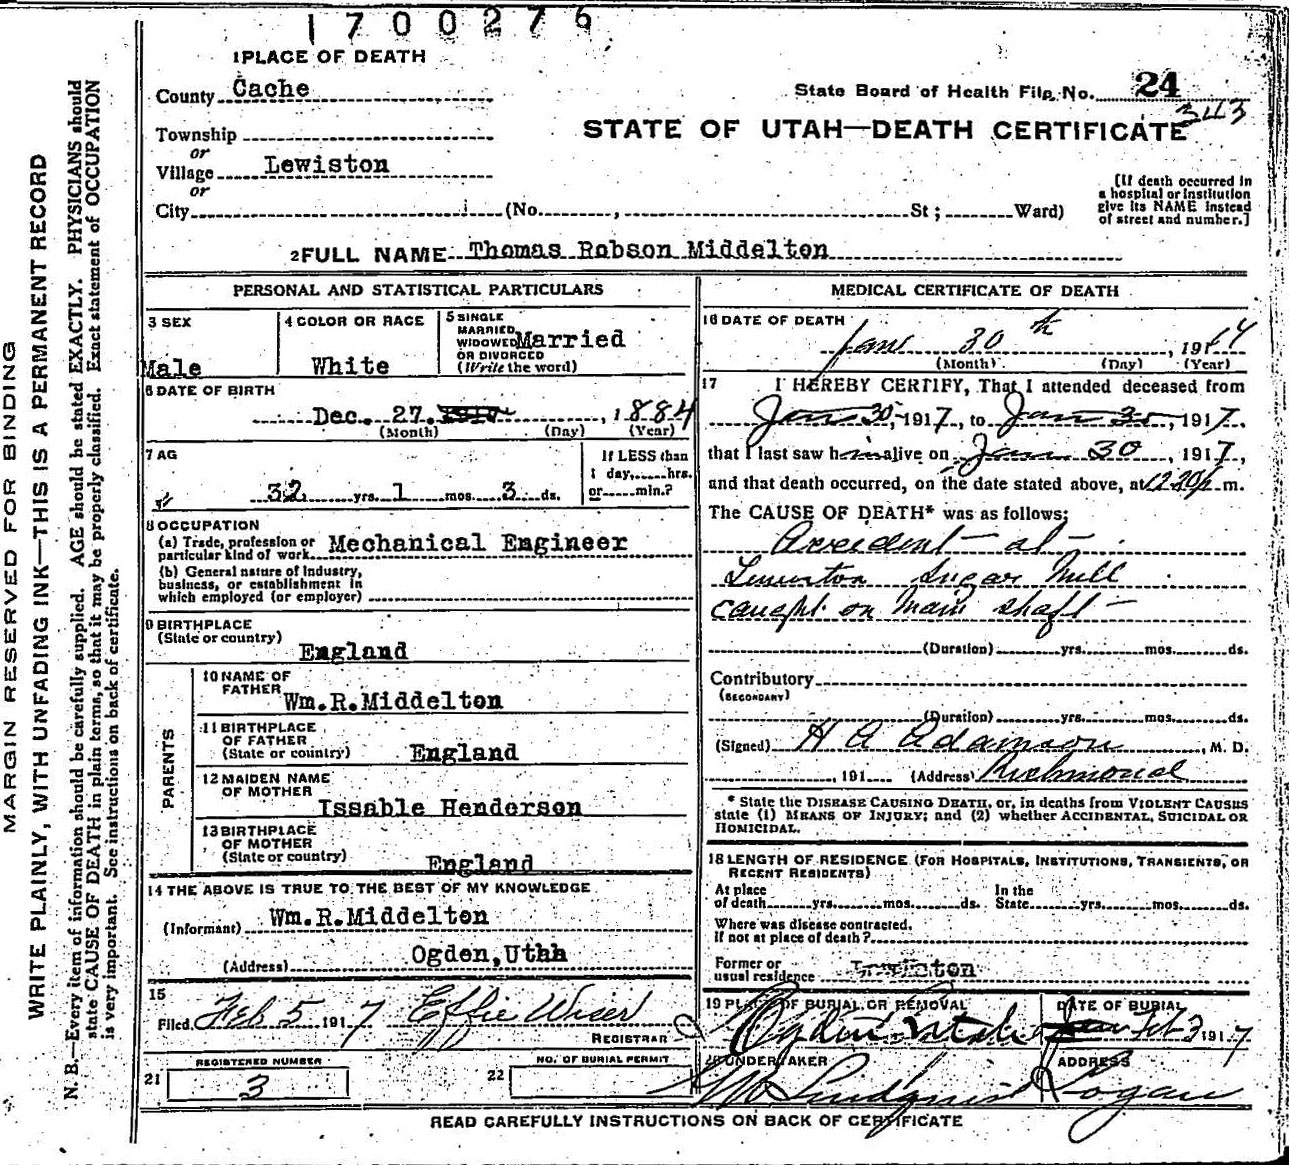 1700276
1 PLACE OF DEATH
County Cache
State Board of Health File No. 24
343
Township
or
Village Lewiston
or
City (No. , St; Ward)
STATE OF UTAH—DEATH CERTIFICATE
[If death occurred in
a hospital or institution
give its NAME instead
of street and number.]
2 FULL NAME Thomas Robson Middelton
PERSONAL AND STATISTICAL PARTICULARS
3 SEX
Male
4 COLOR OR RACE
White
5 SINGLE
MARRIED
WIDOWED Married
OR DIVORCED
(Write the word)
6 DATE OF BIRTH
Dec. 27. 1917, 1884
(Month) (Day) (Year)
7 AG
32 yrs. 1 mos. 3 ds.
If LESS than
1 day, hrs.
or min.?
8 OCCUPATION
(a) Trade, profession or
particular kind of work Mechanical Engineer
(b) General nature of industry,
business, or establishment in
which employed (or employer)
9 BIRTHPLACE
(State or country)
England
PARENTS
10 NAME OF
FATHER
Wm.R.Middelton
11 BIRTHPLACE
OF FATHER
(State or country) England
12 MAIDEN NAME
OF MOTHER
Issable Henderson
13 BIRTHPLACE
OF MOTHER
(State or country)
England
14 THE ABOVE IS TRUE TO THE BEST OF MY KNOWLEDGE
(Informant) Wm.R.Middelton
(Address) Ogden,Utah
15
Filed Feb 5 1917 Effie Wiser
REGISTRAR
REGISTERED NUMBER
21 3
NO. OF BURIAL PERMIT
22
MEDICAL CERTIFICATE OF DEATH
16 DATE OF DEATH
Jan 30th, 191
(Month) (Day) (Year)
17 I HEREBY CERTIFY, That I attended deceased from
Jan 30, 1917, to Jan 30, 1917.
that I last saw him alive on Jan 30, 1917,
and that death occurred, on the date stated above, at m.
The CAUSE OF DEATH* was as follows:
Accident — at —
Lewiston Sugar Mill
caught on main shaft —
(Duration) yrs. mos. ds.
Contributory
(SECONDARY)
(Duration) yrs. mos. ds.
(Signed) H A Adamson, M. D.
, 191 (Address) Richmond
* State the DISEASE CAUSING DEATH, or, in deaths from VIOLENT CAUSES
state (1) MEANS OF INJURY; and (2) whether ACCIDENTAL, SUICIDAL OR
HOMICIDAL.
18 LENGTH OF RESIDENCE (FOR HOSPITALS, INSTITUTIONS, TRANSIENTS, OR
RECENT RESIDENTS)
At place
of death yrs. mos. ds.
In the
State yrs. mos. ds.
Where was disease contracted,
if not at place of death?
Former or
usual residence Lewiston
19 PLACE OF BURIAL OR REMOVAL
Ogden Utah
DATE OF BURIAL
Feb 3 1917
20 UNDERTAKER
Lindquist
ADDRESS
Logan
READ CAREFULLY INSTRUCTIONS ON BACK OF CERTIFICATE
MARGIN RESERVED FOR BINDING
WRITE PLAINLY, WITH UNFADING INK—THIS IS A PERMANENT RECORD
N. B.—Every item of information should be carefully supplied. AGE should be stated EXACTLY. PHYSICIANS should
state CAUSE OF DEATH in plain terms, so that it may be properly classified. Exact statement of OCCUPATION
is very important. See instructions on back of certificate.